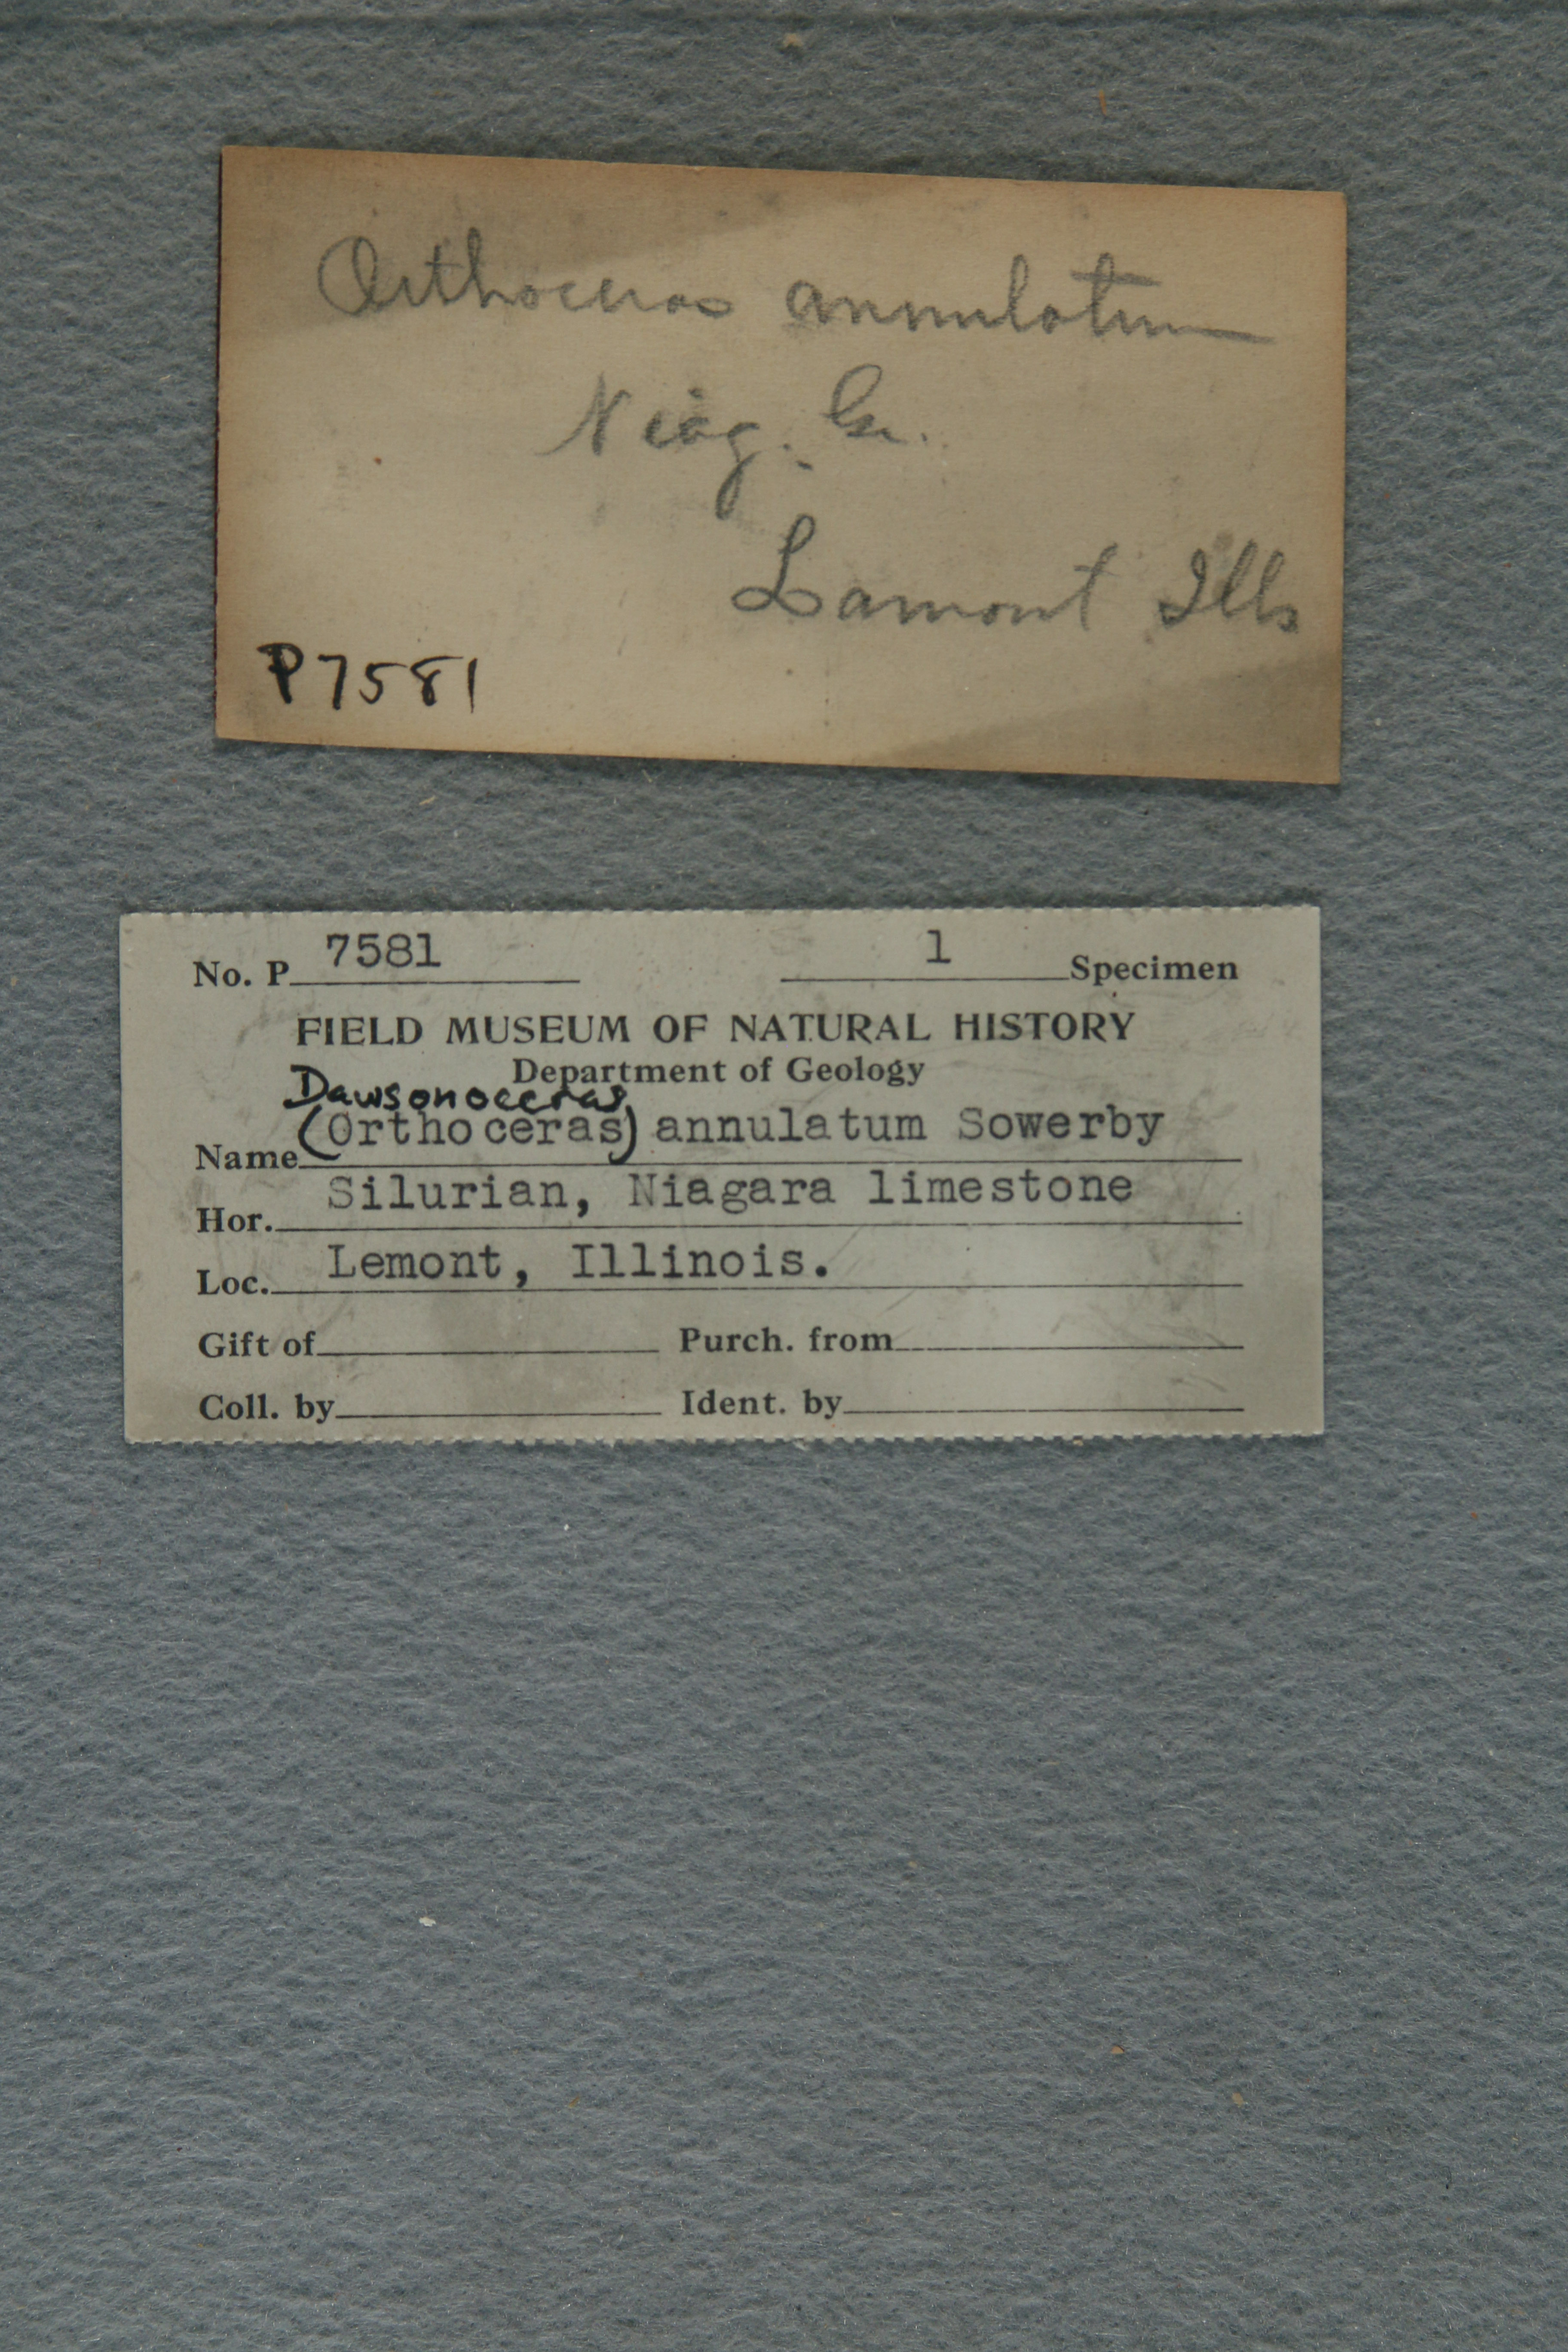 Orthoceras annulatum
Niag. Gr.
Lamont Ills
P7581
No. P 7581 1 Specimen
FIELD MUSEUM OF NATURAL HISTORY
Department of Geology
Dawsonoceras
Name (Orthoceras) annulatum Sowerby
Hor. Silurian, Niagara limestone
Loc. Lemont, Illinois.
Gift of Purch. from
Coll. by Ident. by